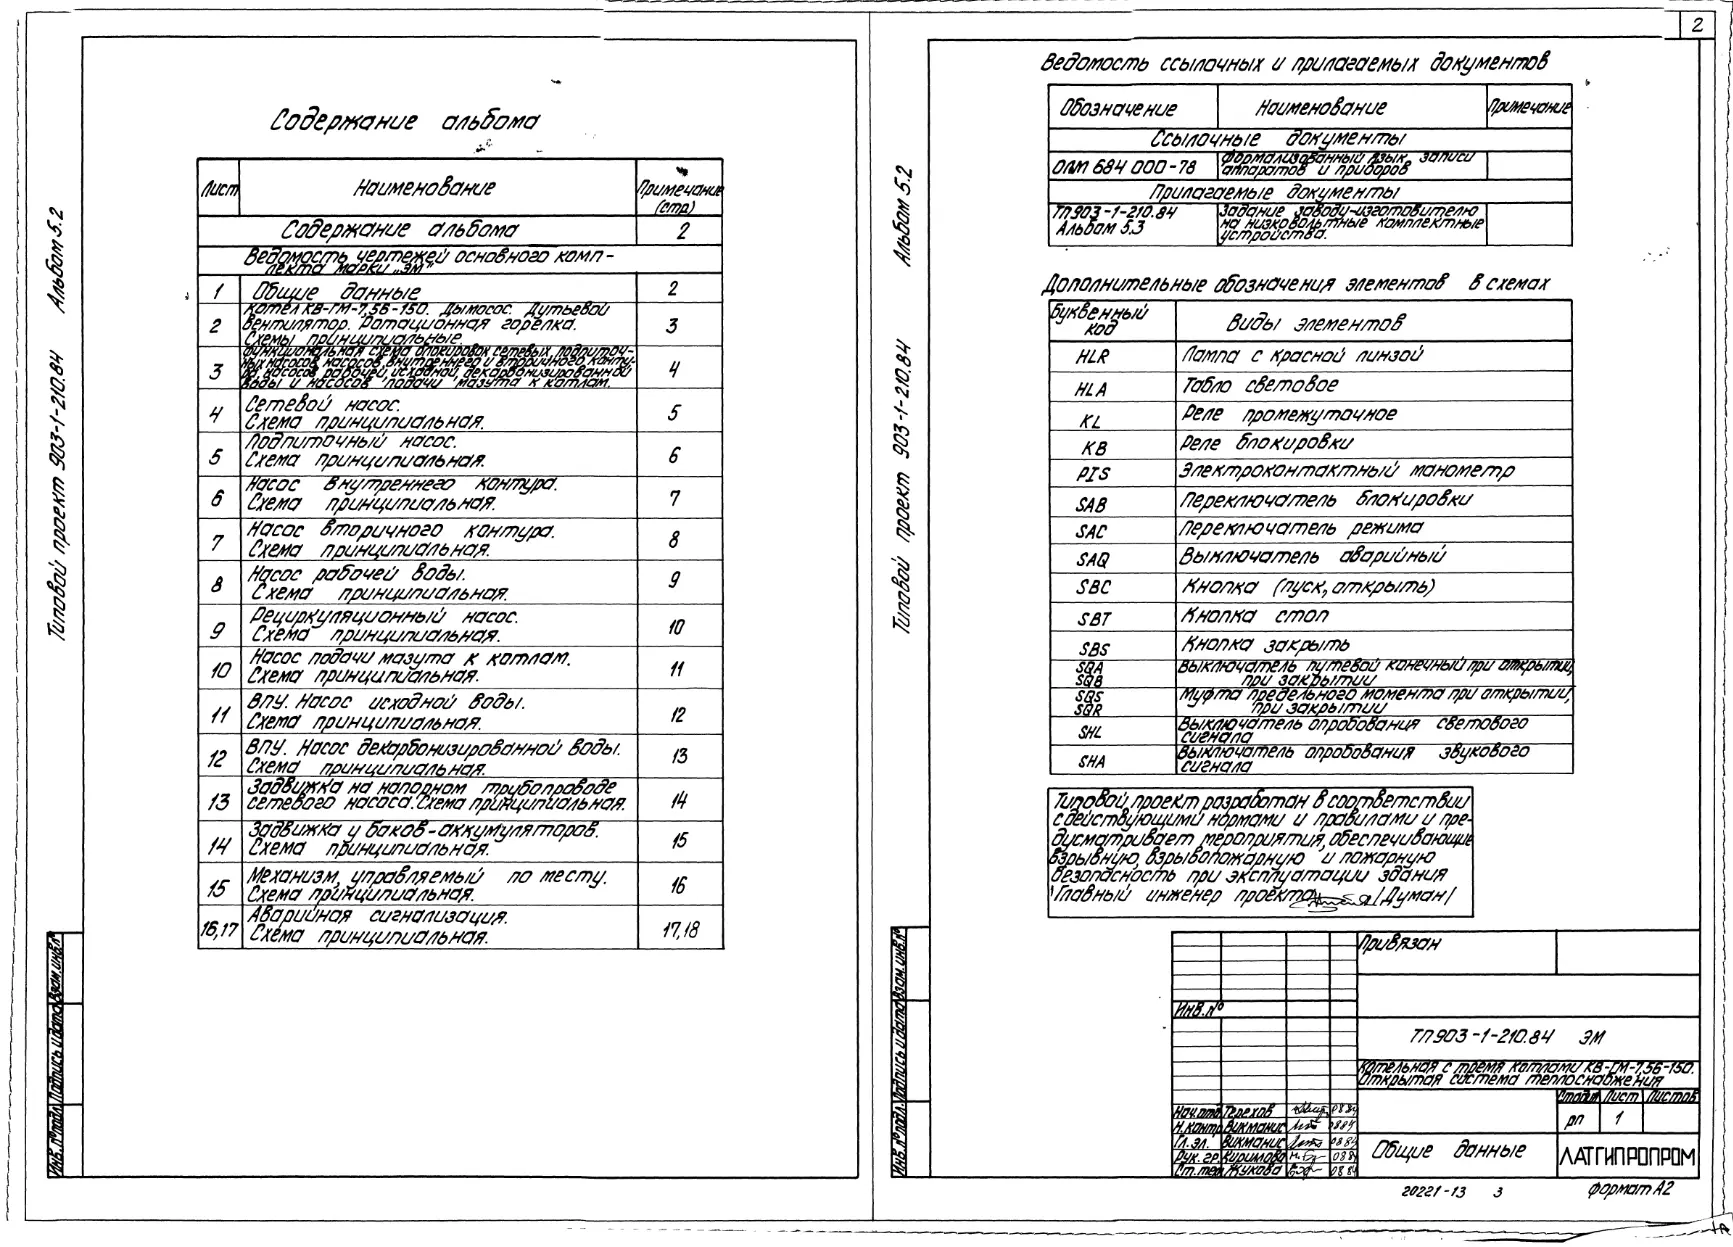 Содержание альбома
Лист
Наименование
Примечание
(стр.)
Содержание альбома
2
Ведомость чертежей основного комп-
лекта марки „ЭМ"
1
Общие данные
2
2
Котел КВ-ГМ-7,56-150. Дымосос. Дутьевой
вентилятор. Ротационная горелка.
Схемы принципиальные
3
3
Функциональная схема блокировок сетевых, подпиточ-
ных насосов, насосов внутреннего и вторичного конту-
ра, насосов рабочей, исходной, декарбонизированной
воды и насосов подачи мазута к котлам.
4
4
Сетевой насос.
Схема принципиальная.
5
5
Подпиточный насос.
Схема принципиальная.
6
6
Насос внутреннего контура.
Схема принципиальная.
7
7
Насос вторичного контура.
Схема принципиальная.
8
8
Насос рабочей воды.
Схема принципиальная.
9
9
Рециркуляционный насос.
Схема принципиальная.
10
10
Насос подачи мазута к котлам.
Схема принципиальная.
11
11
ВПУ. Насос исходной воды.
Схема принципиальная.
12
12
ВПУ. Насос декарбонизированной воды.
Схема принципиальная.
13
13
Задвижка на напорном трубопроводе
сетевого насоса. Схема принципиальная.
14
14
Задвижка у баков-аккумуляторов.
Схема принципиальная.
15
15
Механизм, управляемый по месту.
Схема принципиальная.
16
16,17
Аварийная сигнализация.
Схема принципиальная.
17,18
Типовой проект 903-1-210.84 Альбом 5.2
Инв.№подл. Подпись и дата Взам.инв.№
2
Ведомость ссылочных и прилагаемых документов
Обозначение
Наименование
Примечание
Ссылочные документы
ОЛМ 684 000-78
Формализованный язык записи
аппаратов и приборов
Прилагаемые документы
ТП903-1-210.84
Альбом 5.3
Задание заводу-изготовителю
на низковольтные комплектные
устройства.
Дополнительные обозначения элементов в схемах
Буквенный
код
Виды элементов
HLR
Лампа с красной линзой
HLA
Табло световое
KL
Реле промежуточное
KB
Реле блокировки
PIS
Электроконтактный манометр
SAB
Переключатель блокировки
SAC
Переключатель режима
SAQ
Выключатель аварийный
SBC
Кнопка (пуск, открыть)
SBT
Кнопка стоп
SBS
Кнопка закрыть
SQA
SQB
Выключатель путевой конечный при открытии,
при закрытии
SQS
SQR
Муфта предельного момента при открытии,
при закрытии
SHL
Выключатель опробования светового
сигнала
SHA
Выключатель опробования звукового
сигнала
Типовой проект разработан в соответствии
с действующими нормами и правилами и пре-
дусматривает мероприятия, обеспечивающие
взрывную, взрывопожарную и пожарную
безопасность при эксплуатации здания
Главный инженер проекта /Думан/
Типовой проект 903-1-210.84 Альбом 5.2
Инв.№подл. Подпись и дата Взам.инв.№
Привязан
Инв.№
ТП903-1-210.84 ЭМ
Котельная с тремя котлами КВ-ГМ-7,56-150.
Открытая система теплоснабжения
Стадия Лист Листов
РП 1
Нач.отд. Терехов 08.84
Н.контр. Викманис 08.84
Гл.эл. Викманис 08.84
Рук.гр. Киримова 08.84
Ст.тех. Жукова 08.84
Общие данные
ЛАТГИПРОПРОМ
20221-13 3
формат А2